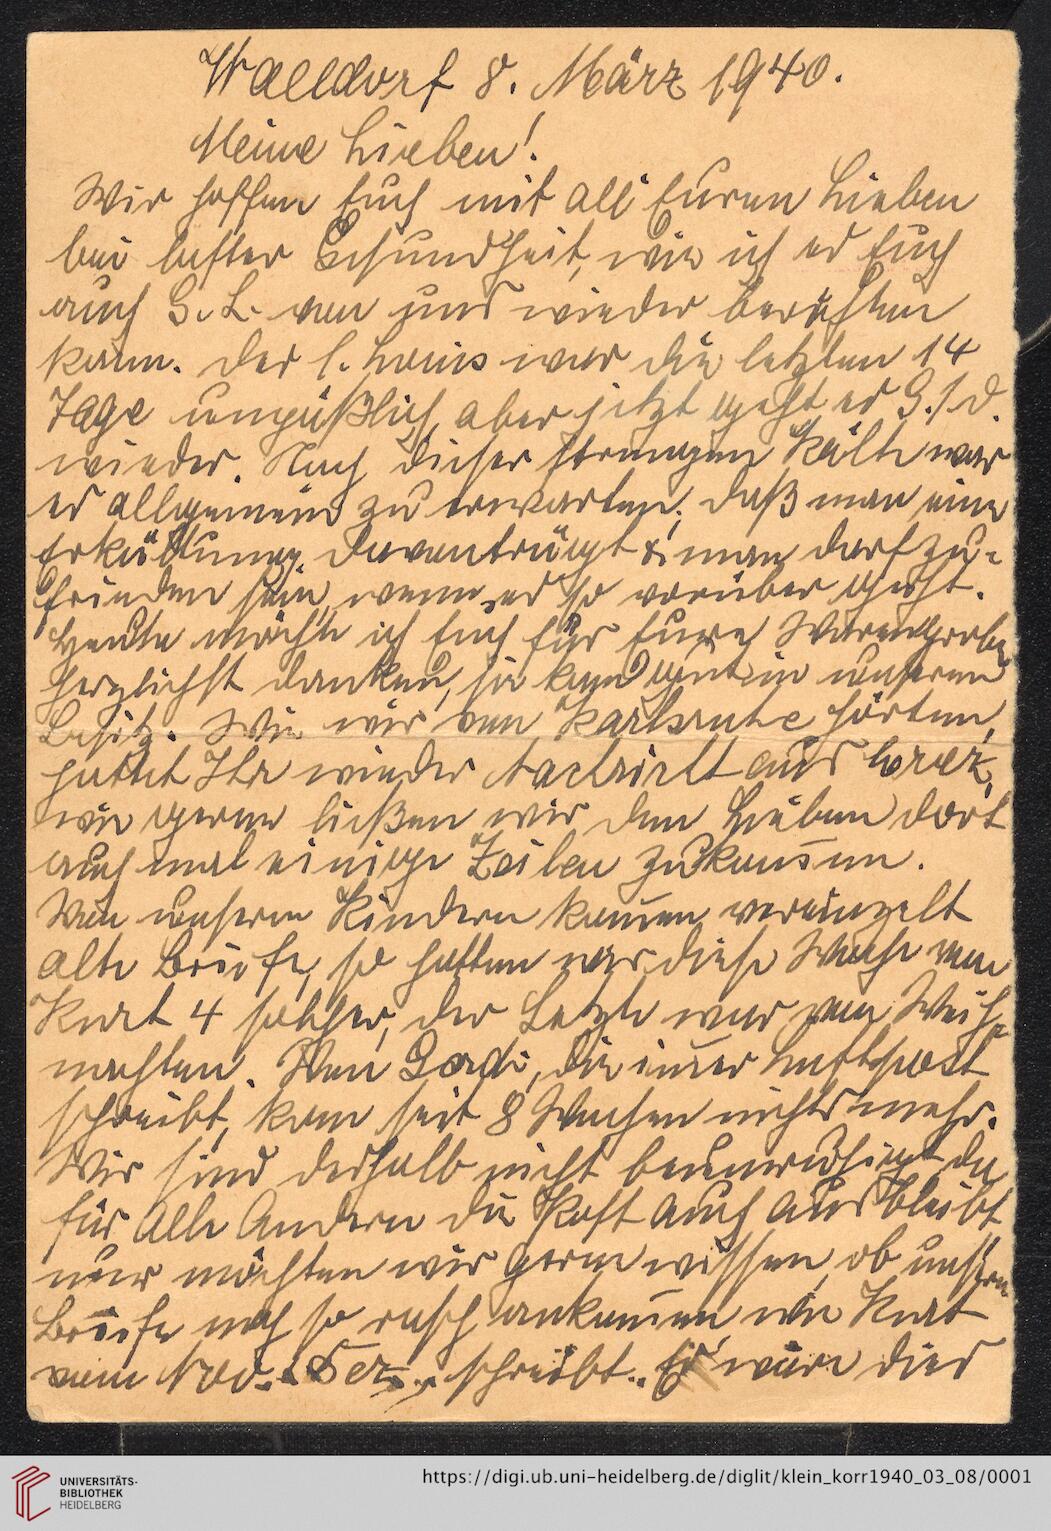 Walldorf 8. März 1940.
Meine Lieben!
Wir hoffen Euch mit all Euren Lieben
bei bester Gesundheit, wie ich es Euch
auch G. L. von uns wieder berichten
kann. Der l. Louis war die letzten 14
Tage unpäßlich, aber jetzt geht es G. s. D.
wieder. Nach dieser strengen Kälte war
es allgemein zu erwarten, daß man eine
Erkältung davonträgt & man darf zu-
frieden sein, wenn es so vorüber geht.
Heute möchte ich Euch für Eure Warenprobe
herzlichst danken, sie kam gut in unseren
Besitz. Wie wir von Karlsruhe hörten,
hattet Ihr wieder Nachricht aus
wie gerne ließen wir den Lieben dort
auch mal einige Zeilen zukom̅en.
Von unseren Kindern kom̅en vereinzelt
alte Briefe, so hatten wir diese Woche von
Kurt 4 solcher, der Letzte war von Weih-
nachten. Von die im̅er Luftpost
schreibt, kam seit 8 Wochen nichts mehr.
Wir sind deshalb nicht beunruhigt da
für alle Andern die Post auch ausbleibt
nur möchten wir gerne wissen, ob unsere
Briefe noch so rasch ankom̅en, wie Kurt
vom Nov. Dez. schreibt. Es wäre dies
UNIVERSITÄTS-
BIBLIOTHEK
HEIDELBERG
https://digi.ub.uni-heidelberg.de/diglit/klein_korr1940_03_08/0001